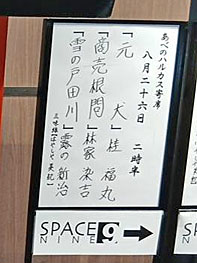 あべのハルカス寄席
八月二十六日 二時半
「元犬」桂 福丸
「商売根問」林家 染吉
「雪の戸田川」露の新治
三味線(はやしや 英紀)
SPACE 9
NINE